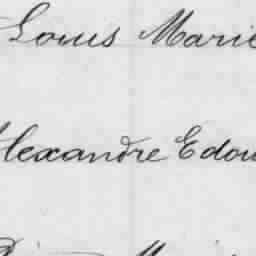 Louis Marie
Alexandre Edou